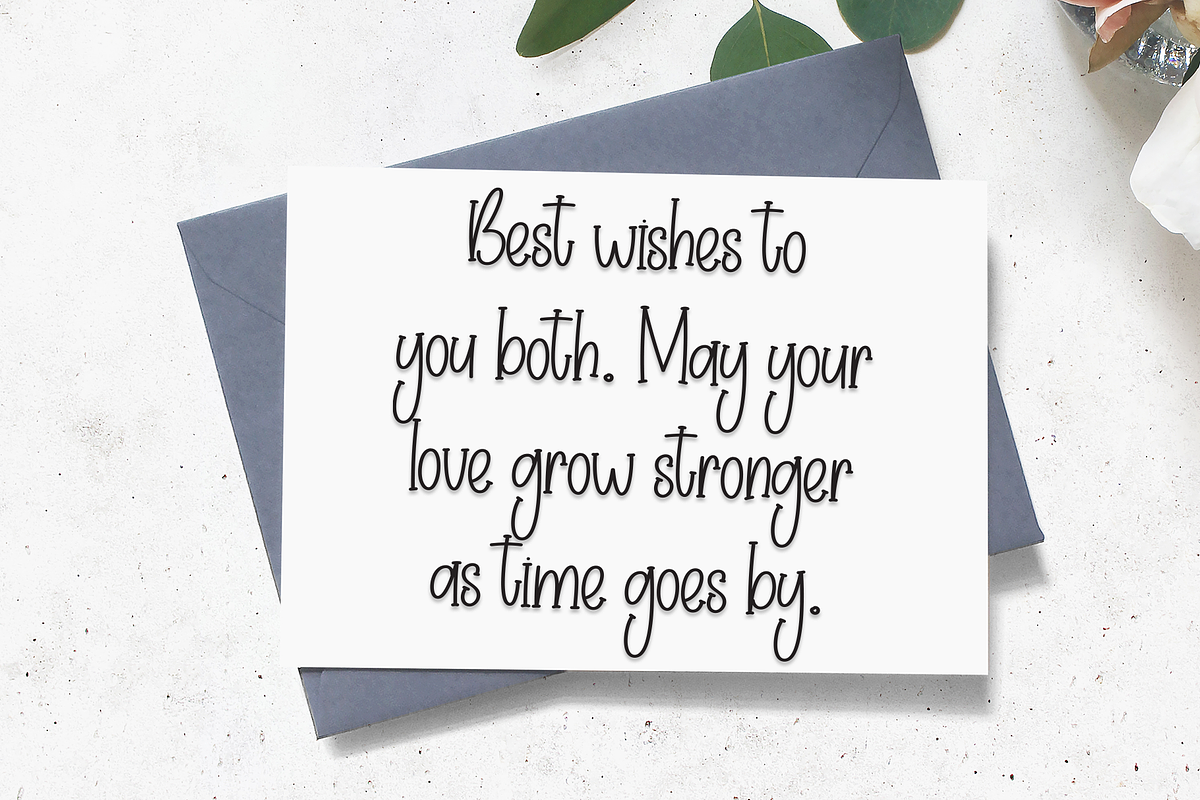 Best wishes to
you both. May your
love grow stronger
as time goes by.